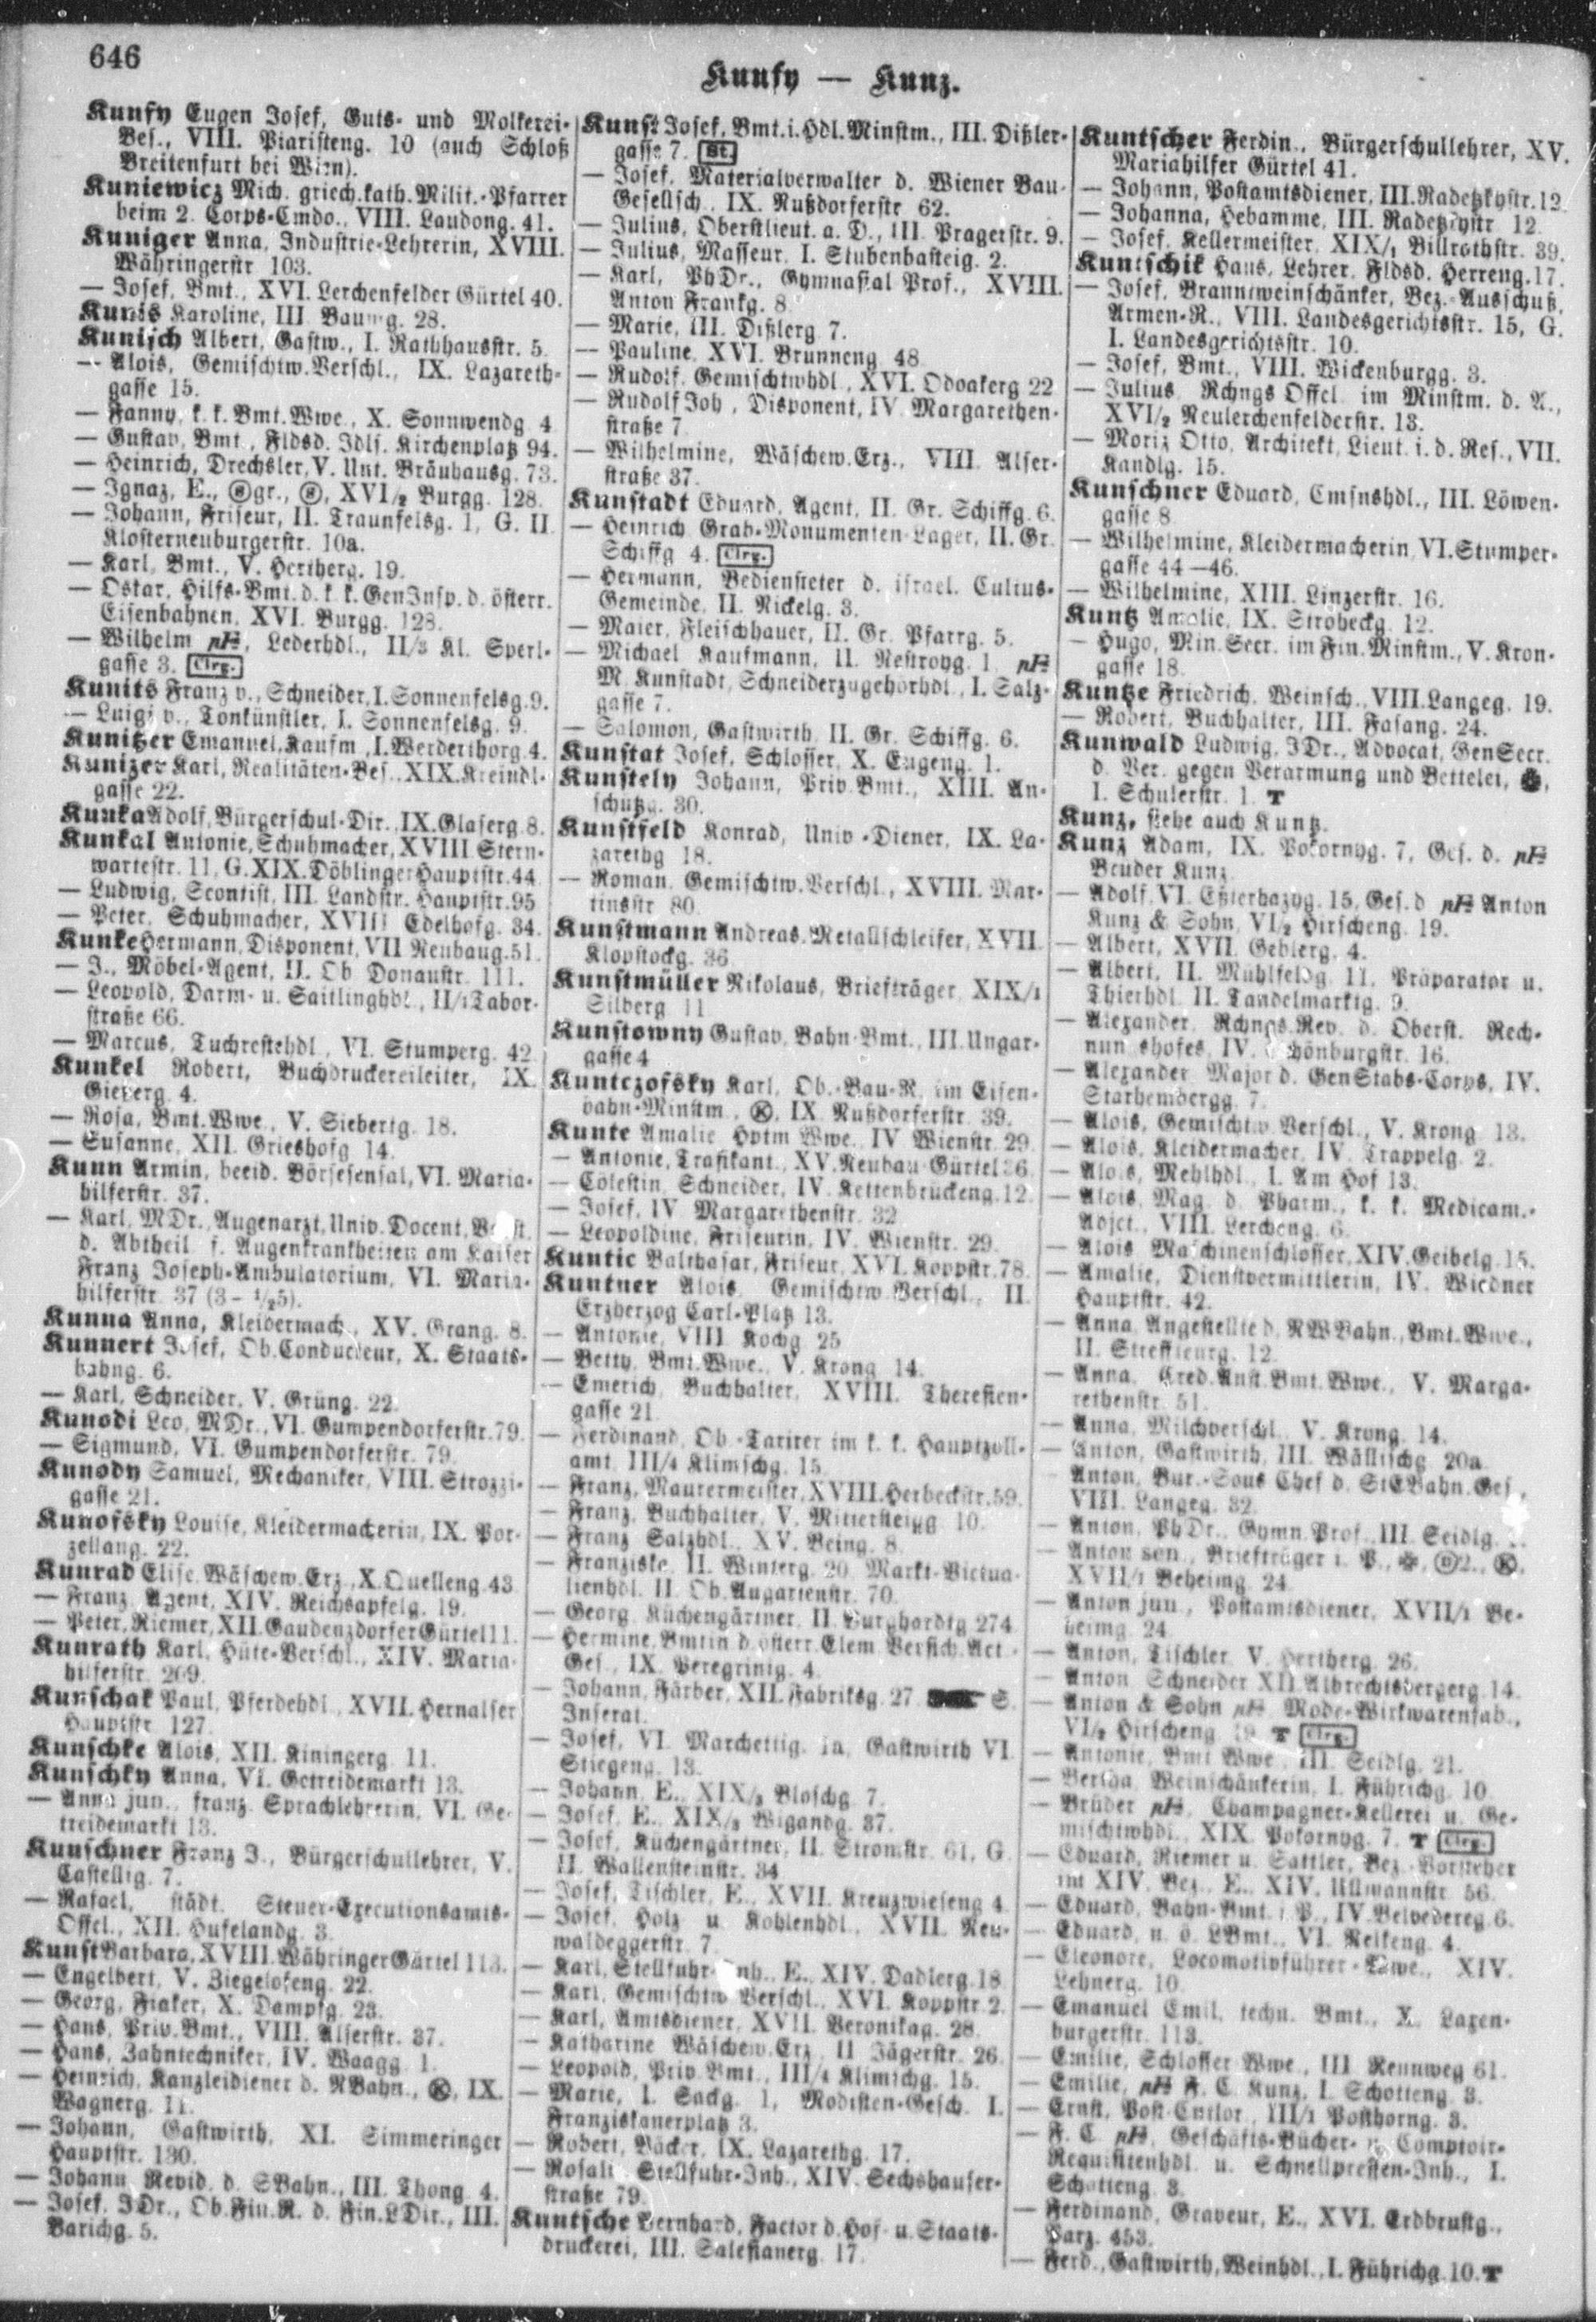 646
Kunfy — Kunz.
Kunfy Eugen Josef, Guts- und Molkerei-
Bes., VIII. Piaristeng. 10 (auch Schloß
Breitenfurt bei Wien).
Kuniewicz Mich. griech.kath. Milit.-Pfarrer
beim 2. Corps-Cmdo., VIII. Laudong. 41.
Kuniger Anna, Industrie-Lehrerin, XVIII.
Währingerstr 103.
— Josef, Bmt., XVI. Lerchenfelder Gürtel 40.
Kunis Karoline, III. 28.
Kunisch Albert, Gastw., I. Rathhausstr. 5.
— Alois, Gemischtw.Verschl., IX. Lazareth-
gasse 15.
— Fanny, k. k. Bmt.Wwe., X. Sonnwendg 4
— Gustav, Bmt., Fldsd. Jdls. Kirchenplatz 94.
— Heinrich, Drechsler, V. Unt. Bräuhausg. 73.
— Ignaz, E., gr., XVI/2 Burgg. 128.
— Johann, Friseur, II. Traunfelsg. 1, G. II
Klosterneuburgerstr. 10a.
— Karl, Bmt., V. Hertherg. 19.
— Oskar, Hilfs-Bmt. d. k k. GenInsp. d. österr.
Eisenbahnen, XVI. Burgg. 128.
— Wilhelm pH, Lederhdl., II/3 Kl. Sperl-
gasse 3. Clrg.
Kunits Franz v., Schneider, I. Sonnenfelsg. 9.
— Luigi v., Tonkünstler, I. Sonnenfelsg. 9.
Kunitzer Emanuel, Kaufm., I. Werderthorg. 4.
Kunizer Karl, Realitäten-Bes., XIX. Kreindl-
gasse 22.
Kunka Adolf, Bürgerschul-Dir., IX. Glaserg. 8.
Kunkal Antonie, Schuhmacher, XVIII Stern-
wartestr. 11, G. XIX. Döblinger Hauptstr. 44
— Ludwig, Scontist, III. Landstr. Hauptstr. 95
— Peter, Schuhmacher, XVIII Edelhofg. 34.
Kunke Hermann, Disponent, VII Neubaug. 51.
— J., Möbel-Agent, II. Ob Donaustr. 111.
— Leopold, Darm- u. Saitlinghdl., II/1 Tabor-
straße 66.
— Marcus, Tuchrestehdl., VI. Stumperg. 42
Kunkel Robert, Buchdruckereileiter, IX.
Gießerg. 4.
— Rosa, Bmt.Wwe., V. Siebertg. 18.
— Susanne, XII. Grieshofg 14.
Kunn Armin, beeid. Börsesensal, VI. Maria-
hilferstr. 37.
— Karl, MDr., Augenarzt, Univ. Docent,
d. Abtheil. f. Augenkrankheiten am Kaiser
Franz Joseph-Ambulatorium, VI. Maria-
hilferstr. 37 (3-1/25).
Kunna Anna, Kleidermach., XV. Grang. 8.
Kunnert Josef, Ob.Conducteur, X. Staats-
bahng. 6.
— Karl, Schneider, V. Grüng. 22.
Kunodi Leo, MDr., VI. Gumpendorferstr. 79.
— Sigmund, VI. Gumpendorferstr. 79.
Kunody Samuel, Mechaniker, VIII. Strozzi-
gasse 21.
Kunofsky Louise, Kleidermacherin, IX. Por-
zellang. 22.
Kunrad Elise, Wäschew.Erz., X. Quelleng. 43
— Franz, Agent, XIV. Reichsapfelg. 19.
— Peter, Riemer, XII. Gaudenzdorfer Gürtel 11.
Kunrath Karl, Hüte-Verschl., XIV. Maria-
hilferstr. 209.
Kunschak Paul, Pferdehdl., XVII. Hernalser
Hauptstr. 127.
Kunschke Alois, XII. Kiningerg. 11.
Kunschky Anna, VI. Getreidemarkt 13.
— Anna jun., franz. Sprachlehrerin, VI. Ge-
treidemarkt 13.
Kunschner Franz J., Bürgerschullehrer, V.
Castellig. 7.
— Rafael, städt. Steuer-Executionsamts-
Offcl., XII. Hufelandg. 3.
Kunst Barbara, XVIII. Währinger Gürtel 113.
— Engelbert, V. Ziegelofeng. 22.
— Georg, Fiaker, X. Dampfg. 23.
— Hans, Priv.Bmt., VIII. Alserstr. 37.
— Hans, Zahntechniker, IV. Waagg. 1.
— Heinrich, Kanzleidiener d. NBahn., IX.
Wagnerg. 11.
— Johann, Gastwirth, XI. Simmeringer
Hauptstr. 130.
— Johann, Revid. d. SBahn., III. Thong. 4.
— Josef, JDr., Ob.Fin.R. d. Fin.LDir., III.
Barichg. 5.
Kunst Josef, Bmt. i. Hdl. Minstm., III. Dißler-
gasse 7. St.
— Josef, Materialverwalter d. Wiener Bau-
Gesellsch., IX. Nußdorferstr 62.
— Julius, Oberstlieut. a. D., III. Pragerstr. 9.
— Julius, Masseur, I. Stubenbasteig. 2.
— Karl, PhDr., Gymnasial Prof., XVIII.
Anton Frankg. 8
— Marie, III. Dißlerg 7.
— Pauline, XVI. Brunneng. 48
— Rudolf, Gemischtwhdl., XVI. Odoakerg 22
— Rudolf Joh., Disponent, IV. Margarethen-
straße 7
— Wilhelmine, Wäschew.Erz., VIII. Alser-
straße 37.
Kunstadt Eduard, Agent, II. Gr. Schiffg. 6.
— Heinrich, Grab-Monumenten-Lager, II. Gr.
Schiffg 4. Clrg.
— Hermann, Bediensteter d. israel. Cultus-
Gemeinde, II. Nickelg. 3.
— Maier, Fleischhauer, II. Gr. Pfarrg. 5.
— Michael, Kaufmann, II. Nestroyg. 1, pH
M. Kunstadt, Schneiderzugehörhdl., I. Salz-
gasse 7.
— Salomon, Gastwirth, II. Gr. Schiffg. 6.
Kunstat Josef, Schlosser, X. Eugeng. 1.
Kunstely Johann, Priv.Bmt., XIII. An-
schützg. 30.
Kunstfeld Konrad, Univ.-Diener, IX. La-
zarethg 18.
— Roman, Gemischtw.Verschl., XVIII. Mar-
tinsstr 80.
Kunstmann Andreas, Metallschleifer, XVII
Klopstockg. 36
Kunstmüller Nikolaus, Briefträger, XIX/1
Silberg 11
Kunstowny Gustav, Bahn-Bmt., III. Ungar-
gasse 4
Kuntczofsky Karl, Ob.-Bau-R. im Eisen-
bahn-Minstm., IX Nußdorferstr. 39.
Kunte Amalie Hptm Wwe., IV Wienstr. 29
— Antonie, Trafikant., XV. Neubau-Gürtel 36.
— Cölestin, Schneider, IV. Kettenbrückeng. 12.
— Josef, IV Margarethenstr. 32
— Leopoldine, Friseurin, IV. Wienstr. 29.
Kuntic Balthasar, Friseur, XVI. Koppstr. 78.
Kuntner Alois, Gemischtw.Verschl., II.
Erzherzog Carl-Platz 13.
— Antonie, VIII Kochg 25
— Betty, Bmt.Wwe., V. Krong. 14.
— Emerich, Buchhalter, XVIII. Theresien-
gasse 21.
— Ferdinand, Ob.-Tarirer im k. k. Hauptzoll-
amt, III/1 Klimschg. 15.
— Franz, Maurermeister, XVIII. Herbeckstr. 59.
— Franz, Buchhalter, V. Mittersteigg 10.
— Franz, Salzhdl., XV. Being. 8.
— Franziska, II. Winterg. 20, Markt-Victua-
lienhdl. II. Ob. Augartenstr. 70.
— Georg, Küchengärtner, II. Burghardtg 274
— Hermine, Bmtin d. österr. Elem. Versich. Act.-
Ges., IX. Peregrinig. 4.
— Johann, Färber, XII. Fabriksg. 27 S.
Inserat.
— Josef, VI. Marchettig. 1a, Gastwirth VI.
Stiegeng. 13.
— Johann, E., XIX/2 Bloschg 7.
— Josef, E., XIX/2 Wigandg. 37.
— Josef, Küchengärtner, II. Stromstr. 61, G.
II. Wallensteinstr. 34
— Josef, Tischler, E., XVII. Kreuzwieseng 4.
— Josef, Holz u Kohlenhdl., XVII. Neu-
waldeggerstr. 7.
— Karl, Stellfuhr-Inh., E., XIV. Dadlerg. 18
— Karl, Gemischtw Verschl., XVI. Koppstr. 2.
— Karl, Amtsdiener, XVII. Veronikag. 28.
— Katharine Wäschew.Erz., II Jägerstr. 26.
— Leopold, Priv.Bmt., III/1 Klimschg. 15.
— Marie, I. Sackg. 1, Modisten-Gesch. I.
Franziskanerplatz 3.
— Robert, Bäcker, IX. Lazarethg. 17.
— Rosalie Stellfuhr-Inh., XIV. Sechshauser-
straße 79.
Kuntsche Bernhard, Factor d. Hof- u. Staats-
druckerei, III. Salesianerg. 17.
Kuntscher Ferdin., Bürgerschullehrer, XV.
Mariahilfer Gürtel 41.
— Johann, Postamtsdiener, III. Radetzkystr. 12
— Johanna, Hebamme, III. Radetzkystr 12.
— Josef, Kellermeister, XIX/1 Billrothstr. 39.
Kuntschik Hans, Lehrer, Fldsd. Herreng. 17.
— Josef, Branntweinschänker, Bez.-Ausschuß,
Armen-R., VIII. Landesgerichtsstr. 15, G.
I. Landesgerichtsstr. 10.
— Josef, Bmt., VIII. Wickenburgg. 3.
— Julius, Rchngs Offcl. im Minstm. d. A.,
XVI/2 Neulerchenfelderstr. 13.
— Moriz Otto, Architekt, Lieut. i. d. Res., VII.
Kandlg. 15.
Kunschner Eduard, Cmsnshdl., III. Löwen-
gasse 8
— Wilhelmine, Kleidermacherin, VI. Stumper-
gasse 44—46.
— Wilhelmine, XIII. Linzerstr. 16.
Kuntz Amalie, IX. Strobeckg. 12.
— Hugo, Min.Secr. im Fin. Minstm., V. Kron-
gasse 18
Kuntze Friedrich, Weinsch., VIII. Langeg. 19.
— Robert, Buchhalter, III. Fasang. 24.
Kunwald Ludwig, JDr., Advocat, GenSecr.
d. Ver. gegen Verarmung und Bettelei,
I. Schulerstr. 1. T
Kunz, siehe auch Kuntz.
Kunz Adam, IX. Pokornyg. 7, Ges. d. pH
Brüder Kunz
— Adolf, VI. Eßterhazyg. 15, Ges. d pH Anton
Kunz & Sohn, VI/2 Hirscheng. 19.
— Albert, XVII. Geblerg. 4.
— Albert, II. Mühlfeldg. 11, Präparator u.
Thierhdl. II. Tandelmarktg. 9.
— Alexander, Rchngs.Rev. d. Oberst. Rech-
nungshofes, IV. Schönburgstr. 16.
— Alexander Major d. GenStabs-Corps, IV.
Starhembergg. 7.
— Alois, Gemischtw Verschl., V. Krong 13.
— Alois, Kleidermacher, IV. Trappelg. 2.
— Alois, Mehlhdl., I. Am Hof 13.
— Alois, Mag. d. Pharm., k. k. Medicam.-
Adjct., VIII. Lercheng. 6.
— Alois Maschinenschlosser, XIV. Geibelg. 15.
— Amalie, Dienstvermittlerin, IV. Wiedner
Hauptstr. 42.
— Anna, Angestellte d. NWBahn., Bmt.Wwe.,
II. Streffleurg. 12.
— Anna, Cred.Anst.Bmt.Wwe., V. Marga-
rethenstr. 51.
— Anna, Milchverschl., V. Krong. 14.
— Anton, Gastwirth, III. Wällischg 20a
— Anton, Bur.-Sous Chef d. StEBahn.Ges.,
VIII. Langeg. 32.
— Anton, PhDr., Gymn.Prof., III. Seidlg.
— Anton sen., Briefträger i. P.,
XVII/1 Beheimg. 24
— Anton jun., Postamtsdiener, XVII/1 Be-
heimg. 24
— Anton, Tischler, V. Hertherg. 26.
— Anton, Schneider, XII Albrechtsbergerg. 14.
— Anton & Sohn pH Mode-Wirkwarenfab.,
VI/2 Hirscheng. 19. T Clrg.
— Antonie, Bmt Wwe, III. Seidlg. 21.
— Bertha, Weinschänkerin, I. Führichg. 10
— Brüder pH, Champagner-Kellerei u. Ge-
mischtwhdl., XIX. Pokornyg. 7. T Clrg.
— Eduard, Riemer u. Sattler, Bez.-Vorsteher
im XIV. Bez., E., XIV. Ullmannstr. 56.
— Eduard, Bahn-Bmt. i. P., IV. Belvedereg. 6.
— Eduard, n. ö. LBmt., VI. Nelkeng. 4.
— Eleonore, Locomotivführer-Wwe., XIV.
Lehnerg. 10.
— Emanuel Emil, techn. Bmt., X. Laxen-
burgerstr. 113.
— Emilie, Schlosser Wwe., III Rennweg 61.
— Emilie, pH F. C. Kunz, I. Schotteng. 3.
— Ernst, Post-Cntlor., III/1 Posthorng. 3.
— F. C. pH, Geschäfts-Bücher- u. Comptoir-
Requisitenhdl. u. Schnellpressen-Inh., I.
Schotteng. 3.
— Ferdinand, Graveur, E., XVI. Erdbrustg.,
Parz. 453.
— Ferd., Gastwirth, Weinhdl., I. Führichg. 10. T